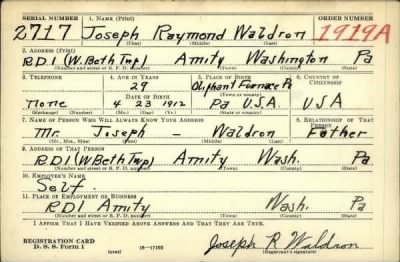 SERIAL NUMBER 1. NAME (Print) ORDER NUMBER
2717 Joseph Raymond Waldron 1919A
(First) (Middle) (Last)
2. ADDRESS (Print)
RD1 (W. Beth Twp) Amity Washington Pa
(Number and street or R. F. D. number) (Town) (County) (State)
3. TELEPHONE 4. AGE IN YEARS 5. PLACE OF BIRTH 6. COUNTRY OF CITIZENSHIP
27 Oliphant Furnace Pa
DATE OF BIRTH (Town or county)
None 4 23 1912 Pa U.S.A. U S A
(Mo.) (Day) (Yr.) (State or country)
7. NAME OF PERSON WHO WILL ALWAYS KNOW YOUR ADDRESS 8. RELATIONSHIP OF THAT PERSON
Mr. Joseph - Waldron Father
(Mr., Mrs., Miss) (First) (Middle) (Last)
9. ADDRESS OF THAT PERSON
RD1 (W. Beth Twp) Amity Wash. Pa
(Number and street or R. F. D. number) (Town) (County) (State)
10. EMPLOYER'S NAME
Self.
11. PLACE OF EMPLOYMENT OR BUSINESS
RD1 Amity Wash. Pa
(Number and street or R. F. D. number) (Town) (County) (State)
I AFFIRM THAT I HAVE VERIFIED ABOVE ANSWERS AND THAT THEY ARE TRUE.
REGISTRATION CARD
D. S. S. Form 1 (over) 16-17105 Joseph R Waldron
(Registrant's signature)